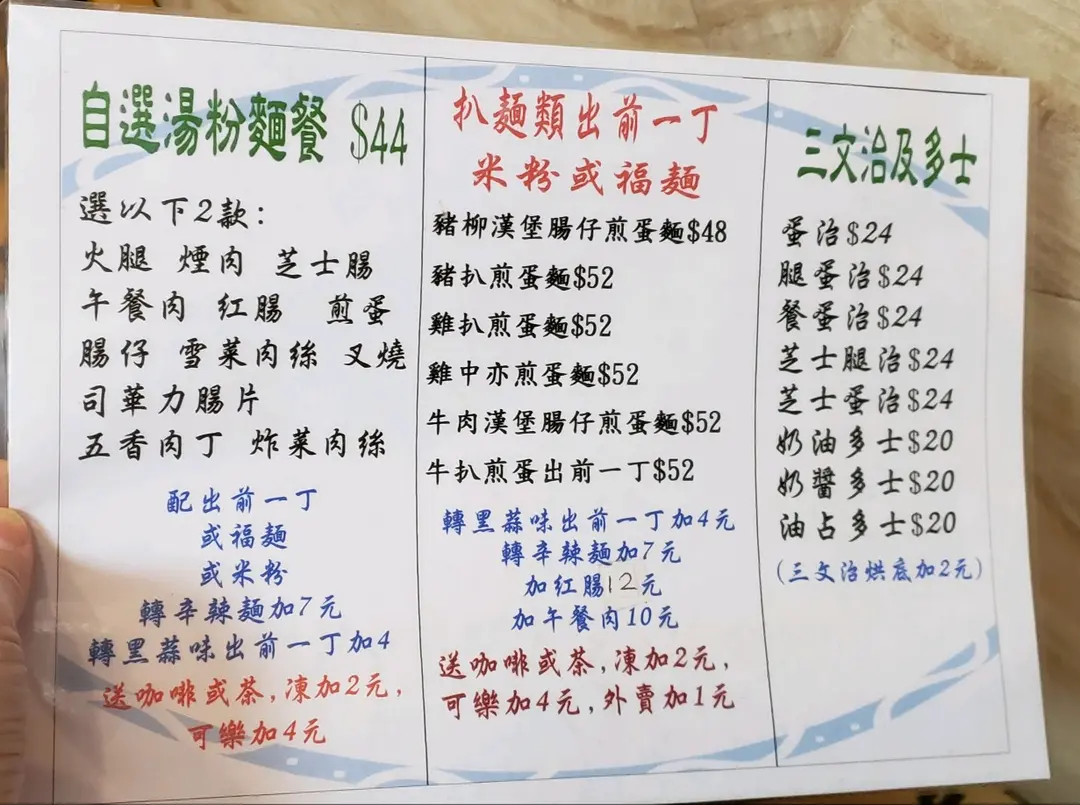 自選湯粉麵餐 $44
選以下2款：
火腿 煙肉 芝士腸
午餐肉 紅腸 煎蛋
腸仔 雪菜肉絲 叉燒
司華力腸片
五香肉丁 炸菜肉絲
配出前一丁
或福麵
或米粉
轉辛辣麵加7元
轉黑蒜味出前一丁加4
送咖啡或茶，凍加2元，
可樂加4元
扒麵類出前一丁
米粉或福麵
豬柳漢堡腸仔煎蛋麵$48
豬扒煎蛋麵$52
雞扒煎蛋麵$52
雞中亦煎蛋麵$52
牛肉漢堡腸仔煎蛋麵$52
牛扒煎蛋出前一丁$52
轉黑蒜味出前一丁加4元
轉辛辣麵加7元
加紅腸12元
加午餐肉10元
送咖啡或茶，凍加2元，
可樂加4元，外賣加1元
三文治及多士
蛋治$24
腿蛋治$24
餐蛋治$24
芝士腿治$24
芝士蛋治$24
奶油多士$20
奶醬多士$20
油占多士$20
(三文治烘底加2元)